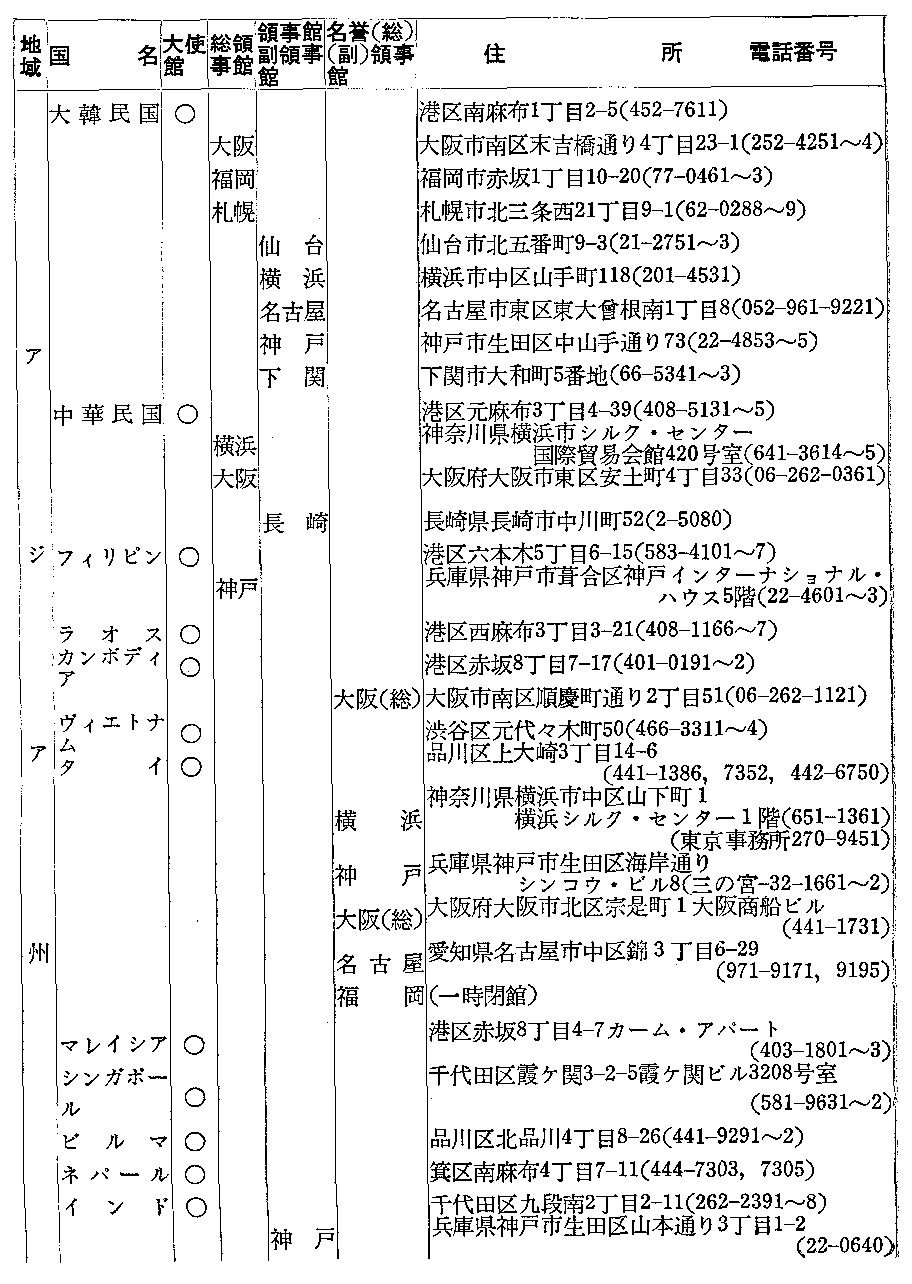 地域 国名 大使館 総領事館 領事館副領事館 名誉(総)(副)領事館 住所 電話番号
アジア州
大韓民国 ○ 港区南麻布1丁目2-5(452-7611)
大阪 大阪市南区末吉橋通り4丁目23-1(252-4251〜4)
福岡 福岡市赤坂1丁目10-20(77-0461〜3)
札幌 札幌市北三条西21丁目9-1(62-0288〜9)
仙台 仙台市北五番町9-3(21-2751〜3)
横浜 横浜市中区山手町118(201-4531)
名古屋 名古屋市東区東大曾根南1丁目8(052-961-9221)
神戸 神戸市生田区中山手通り73(22-4853〜5)
下関 下関市大和町5番地(66-5341〜3)
中華民国 ○ 港区元麻布3丁目4-39(408-5131〜5)
横浜 神奈川県横浜市シルク・センター
国際貿易会館420号室(641-3614〜5)
大阪 大阪府大阪市東区安土町4丁目33(06-262-0361)
長崎 長崎県長崎市中川町52(2-5080)
フィリピン ○ 港区六本木5丁目6-15(583-4101〜7)
神戸 兵庫県神戸市葺合区神戸インターナショナル・
ハウス5階(22-4601〜3)
ラオス ○ 港区西麻布3丁目3-21(408-1166〜7)
カンボディア ○ 港区赤坂8丁目7-17(401-0191〜2)
大阪(総) 大阪市南区順慶町通り2丁目51(06-262-1121)
ヴィエトナム ○ 渋谷区元代々木町50(466-3311〜4)
タイ ○ 品川区上大崎3丁目14-6
(441-1386, 7352, 442-6750)
横浜 神奈川県横浜市中区山下町1
横浜シルク・センター1階(651-1361)
(東京事務所270-9451)
神戸 兵庫県神戸市生田区海岸通り
シンコウ・ビル8(三の宮-32-1661〜2)
大阪(総) 大阪府大阪市北区宗是町1大阪商船ビル
(441-1731)
名古屋 愛知県名古屋市中区錦3丁目6-29
(971-9171, 9195)
福岡 (一時閉館)
マレイシア ○ 港区赤坂8丁目4-7カーム・アパート
(403-1801〜3)
シンガポール ○ 千代田区霞ケ関3-2-5霞ケ関ビル3208号室
(581-9631〜2)
ビルマ ○ 品川区北品川4丁目8-26(441-9291〜2)
ネパール ○ 箕区南麻布4丁目7-11(444-7303, 7305)
インド ○ 千代田区九段南2丁目2-11(262-2391〜8)
神戸 兵庫県神戸市生田区山本通り3丁目1-2
(22-0640)